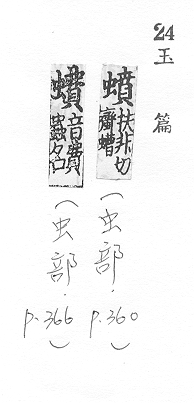 24
玉篇
蟦 扶非切
螬
(虫部.
p.360)
音費
蟲名
(虫部.
p.366)